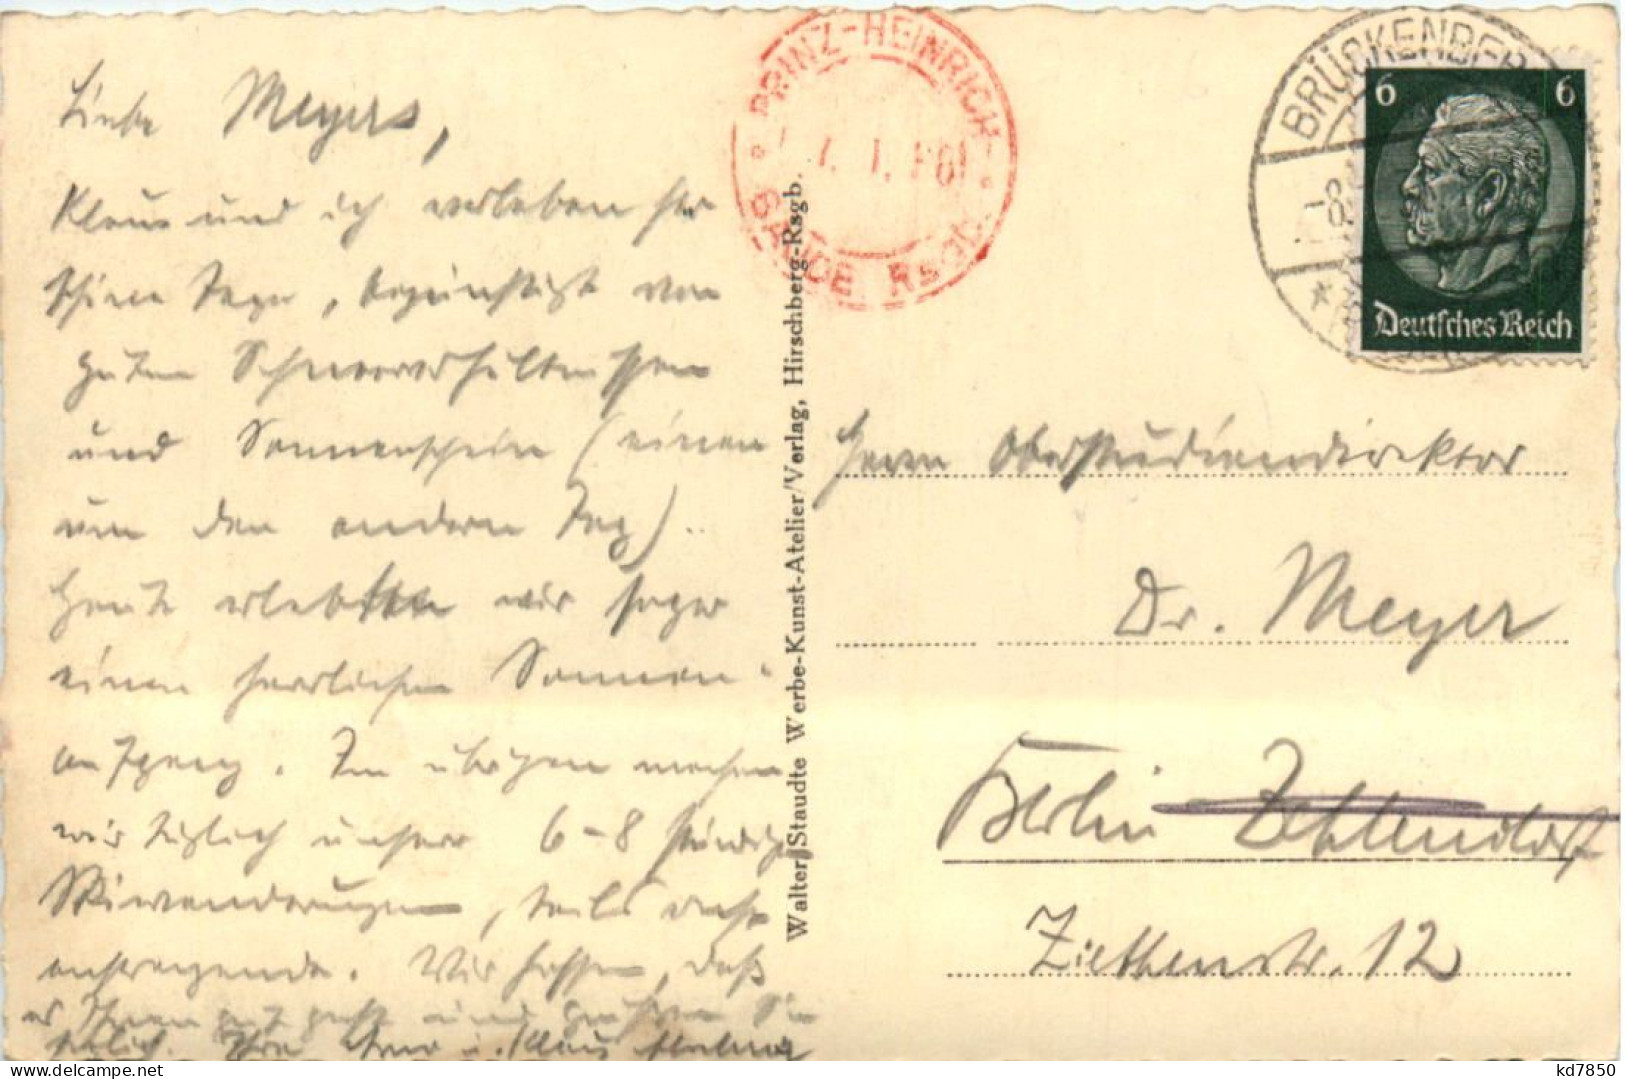 Liebe Meyers,
Klaus und ich verleben hier
schöne Tage, begünstigt von
guten Schneeverhältnissen
und Sonnenschein (einen
um den andern Tag).
Heute erlebten wir sogar
einen herrlichen Sonnen-
aufgang. Im übrigen machen
wir täglich unsere 6-8 stündigen
Skiwanderungen, teils recht
anstrengende. Wir hoffen, daß
es Ihnen gut geht und grüßen Sie
herzlich. Ihre u. Klaus
PRINZ-HEINRICH-
BAUDE Rsgb.
Walter Staudte Werbe-Kunst-Atelier/Verlag, Hirschberg-Rsgb.
BRÜCKENBER
-8.
6 6
Deutsches Reich
Herrn Oberstudiendirektor
Dr. Meyer
Berlin Zehlendorf
Ziethenstr. 12
kd7850